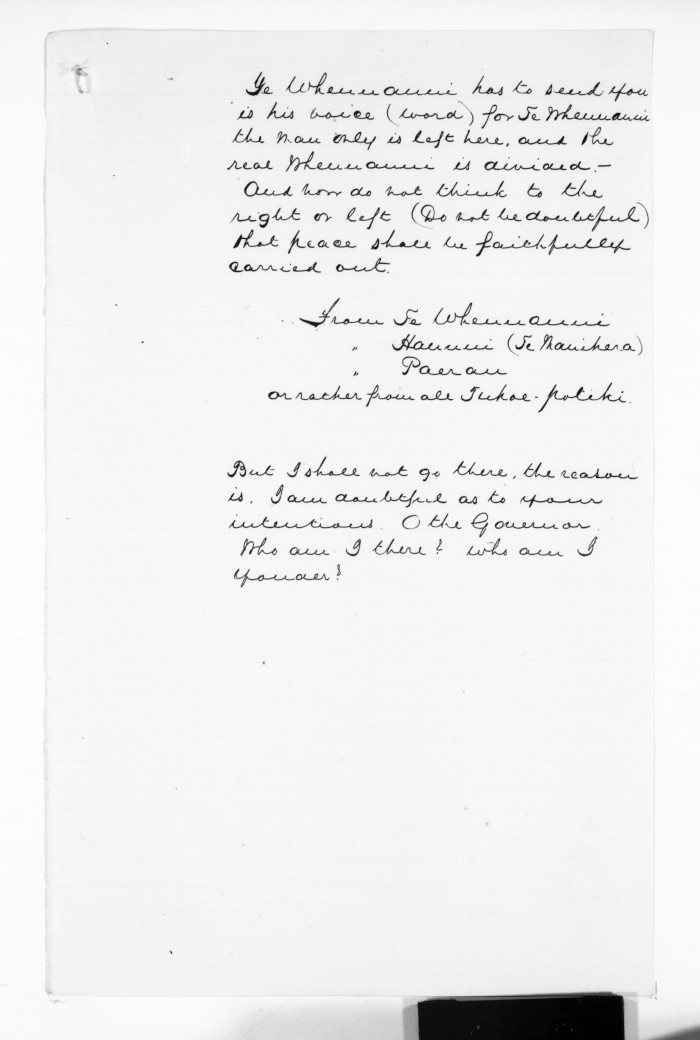 Te Whenuanui has to send you
is his voice (word) for Te Whenuanui
the man only is left here, and the
real Whenuanui is divided. –
And now do not think to the
right or left (Do not be doubtful)
that peace shall be faithfully
carried out.
From Te Whenuanui
" Haunui (Te Manihera)
" Paerau
or rather from all Tuhoe-potiki.
But I shall not go there, the reason
is. I am doubtful as to your
intentions. O the Governor.
Who am I there? who am I
yonder?